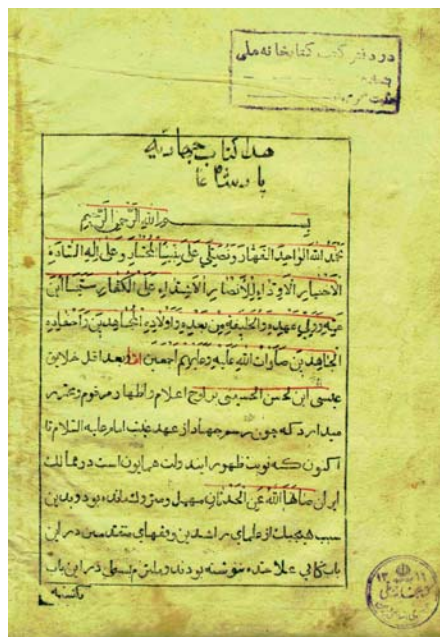 در دفتر کتب کتابخانه ملی
هذا کتاب جهادیه
بسم الله الرحمن الرحیم
نحمد الله الواحد القهار و نصلی علی نبینا المختار و علی اله السادة
الاخیار الاوداء للانصار الاشداء علی الکفار سیما ابن
عمه و ولی عهده و الخلیفة من بعده و اولاده المجاهدین و احفاده
الجاهدین صلوات الله علیه و علیهم اجمعین اما بعد اقل خلایق
عیسی ابن الحسن الحسینی بر لوح اعلام و اظهار مرقوم و محرر
میدارد که چون رسم جهاد از عهد غیبت امام علیه السلام تا
اکنون که نوبت ظهور ایند ولت همایون است در ممالک
ایران صانها الله عن الحدثان مهمل و متروک مانده بود و بدین
سبب هیچیک از علمای راشدین و فقهای متقدمین در این
باب کتابی علاحده ننوشته بودند و ملتزم بسطی در این باب